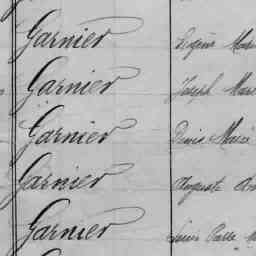 Garnier Eugène
Garnier Joseph Marie
Garnier Denis Marie
Garnier Auguste
Garnier Louis